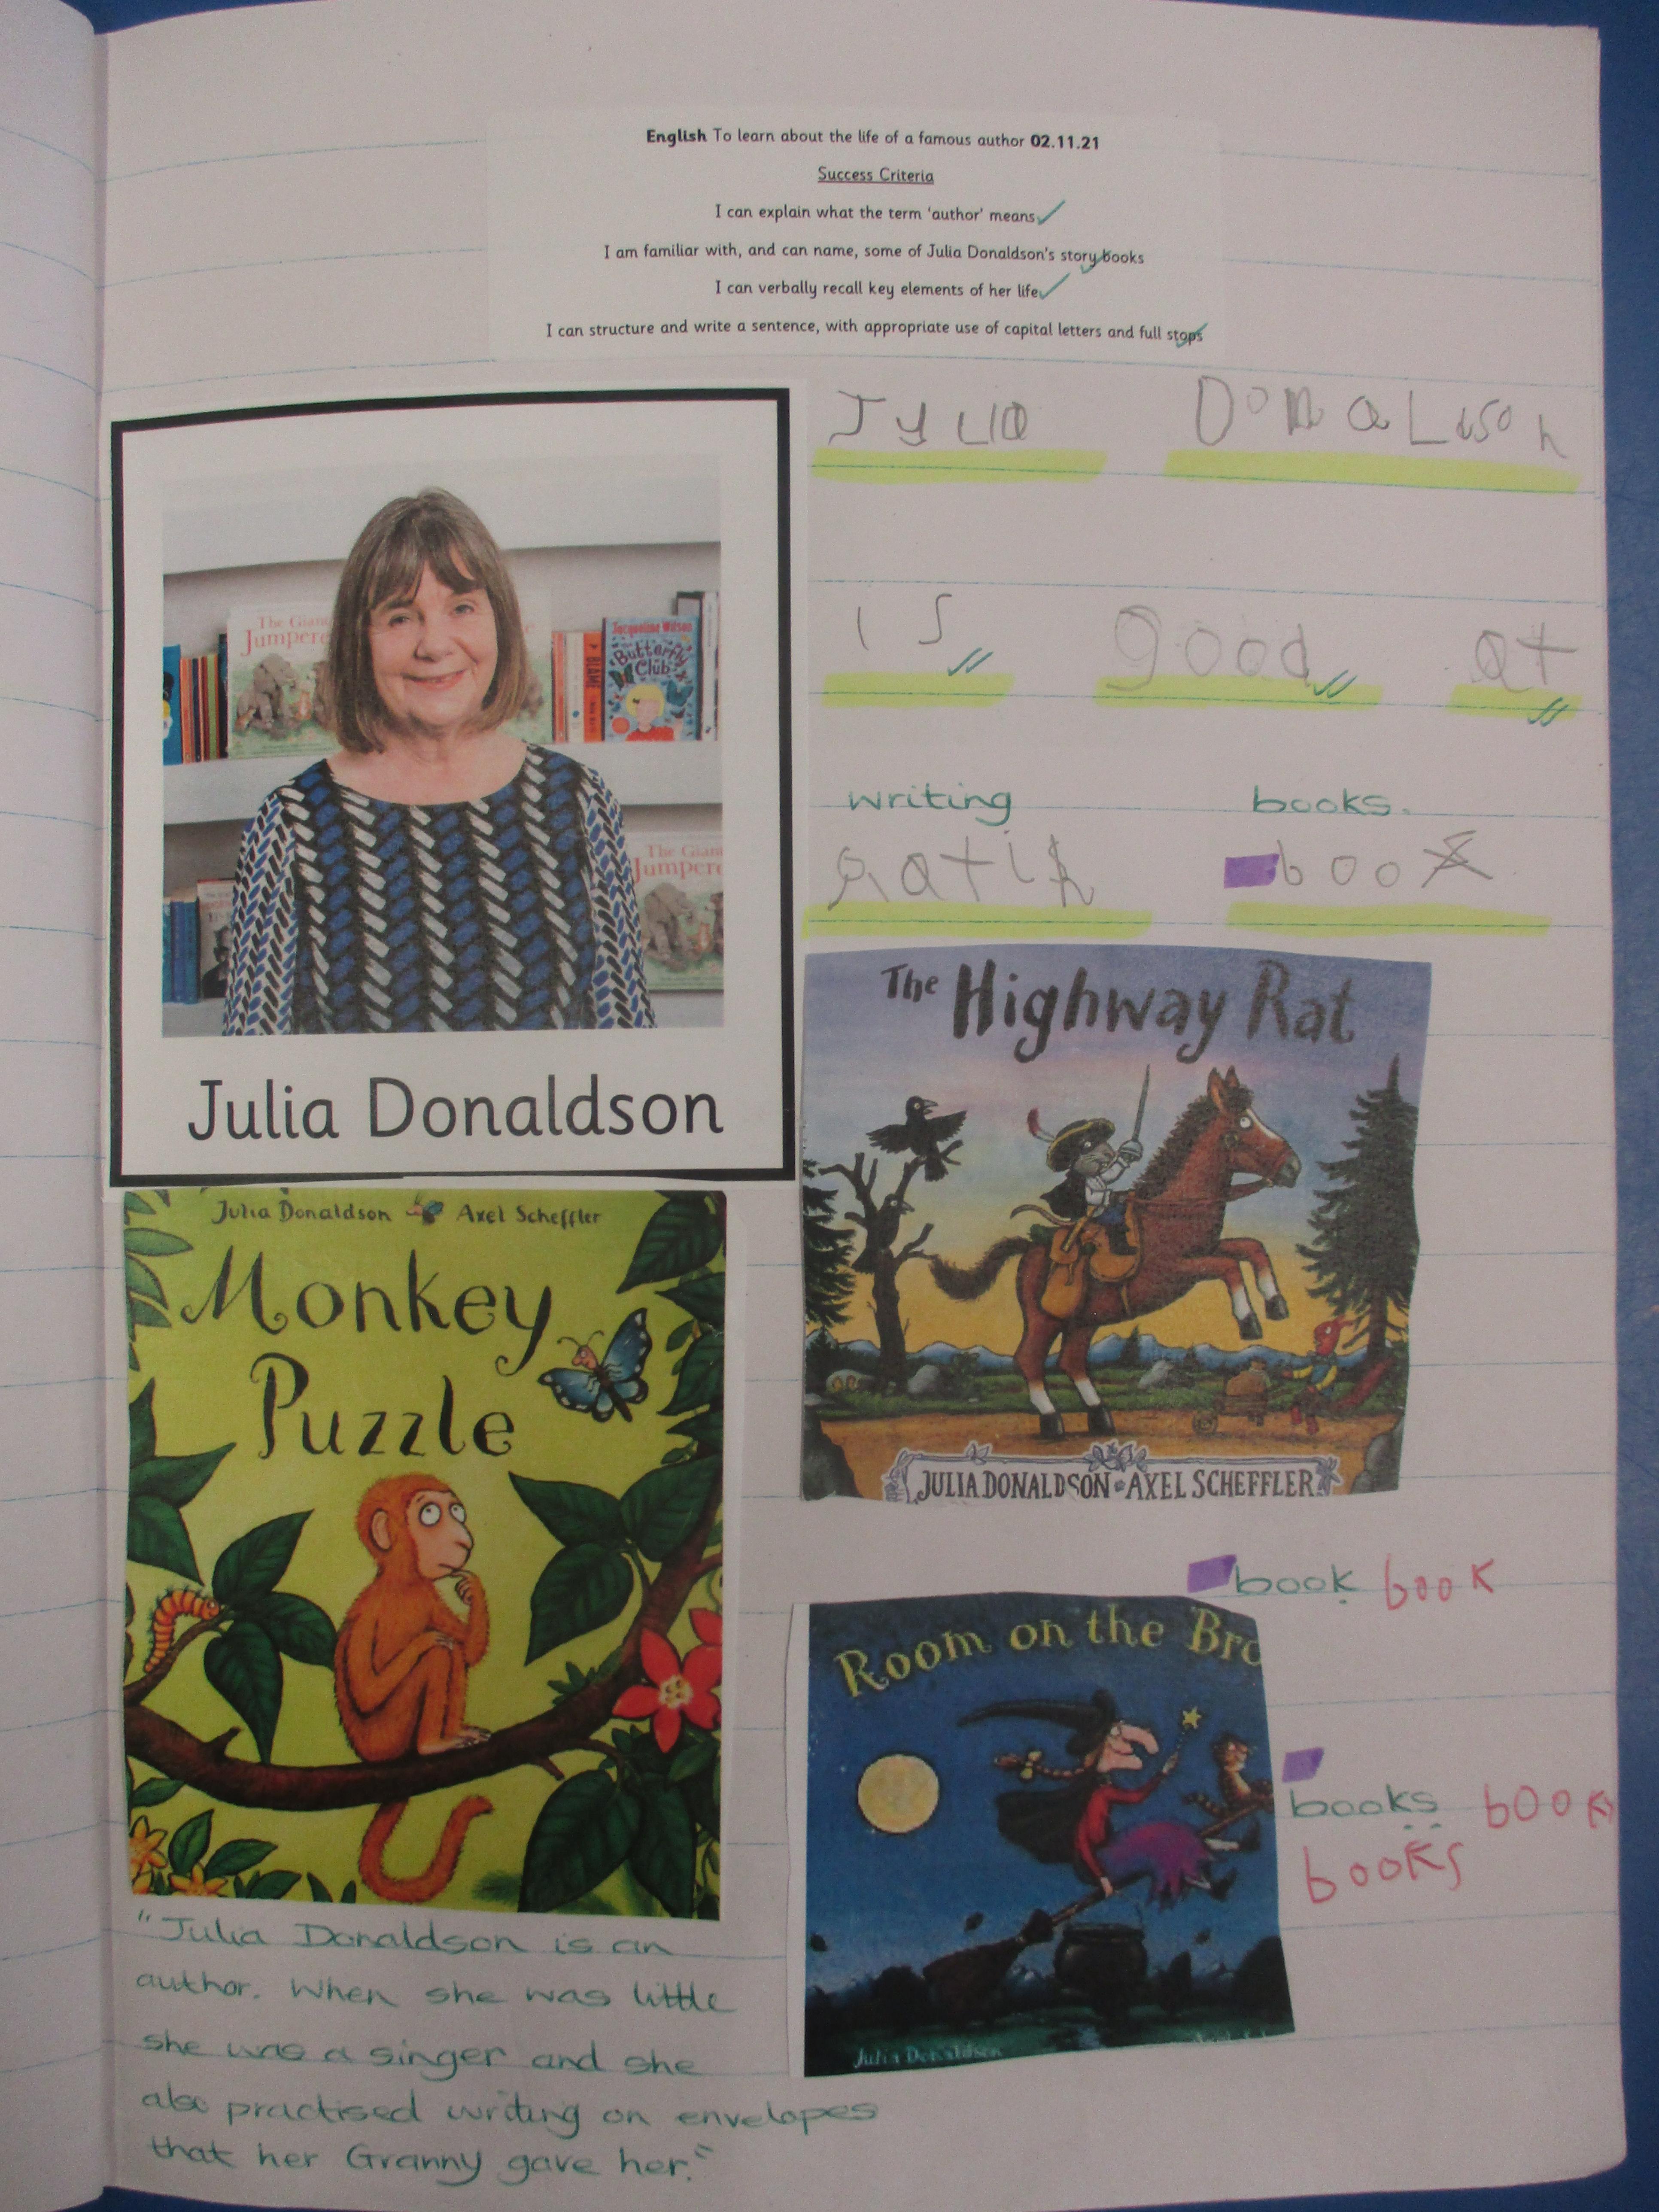 English To learn about the life of a famous author 02.11.21
Success Criteria
I can explain what the term 'author' means
I am familiar with, and can name, some of Julia Donaldson's story books
I can verbally recall key elements of her life
I can structure and write a sentence, with appropriate use of capital letters and full stops
JyLia DonaLdson
is good at
writing books.
book
The Giant
Jumpere
Jacqueline Wilson
Butterfly
Club
BLAME
The Giant
Jumpere
Julia Donaldson
The Highway Rat
JULIA DONALDSON AXEL SCHEFFLER
Julia Donaldson Axel Scheffler
Monkey
Puzzle
book book
Room on the Bro
books book
books
Julia Donaldson
"Julia Donaldson is an
author. When she was little
she was a singer and she
also practised writing on envelopes
that her Granny gave her."